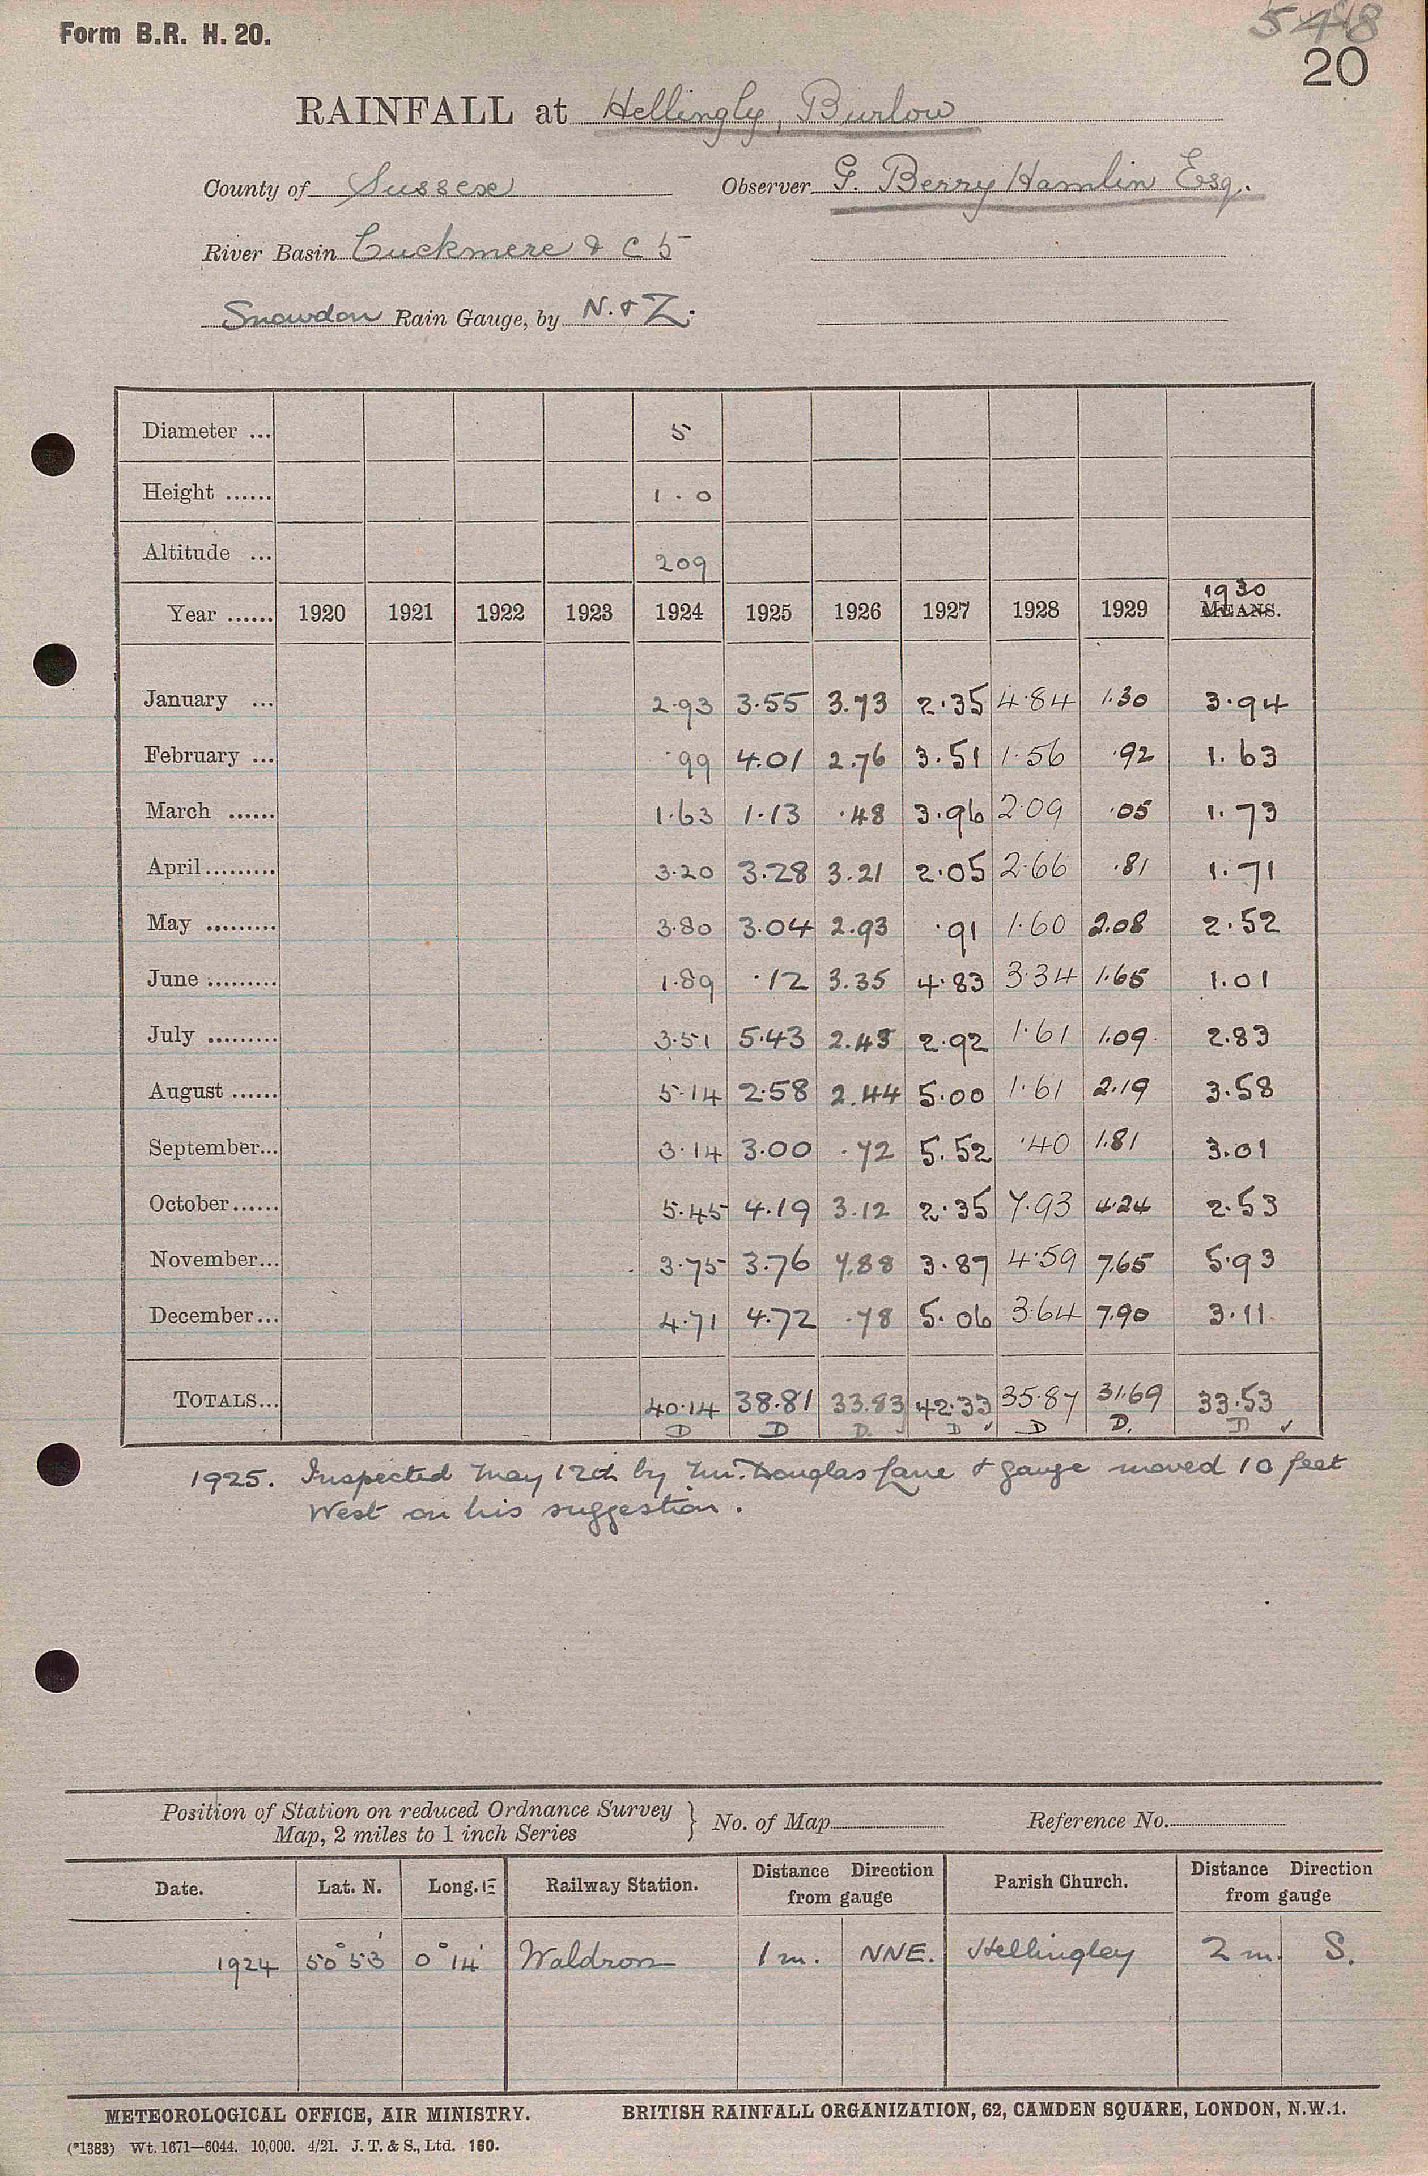 Form B.R. H. 20.
548
20
RAINFALL at Hellingly, Burlow
County of Sussex Observer G. Berry Hamlin Esq.
River Basin Cuckmere & C 5
Snowdon Rain Gauge, by N. & Z.
Diameter ... 5
Height ...... 1 . 0
Altitude ... 209
1930
Year ...... 1920 1921 1922 1923 1924 1925 1926 1927 1928 1929 MEANS.
January ... 2.93 3.55 3.73 2.35 4.84 1.30 3.94
February ... .99 4.01 2.76 3.51 1.56 .92 1.63
March ...... 1.63 1.13 .48 3.96 2.09 .05 1.73
April ......... 3.20 3.28 3.21 2.05 2.66 .81 1.71
May ......... 3.80 3.04 2.93 .91 1.60 2.08 2.52
June ......... 1.89 .12 3.35 4.83 3.34 1.65 1.01
July ......... 3.51 5.43 2.43 2.92 1.61 1.09 2.83
August ...... 5.14 2.58 2.44 5.00 1.61 2.19 3.58
September... 3.14 3.00 .72 5.52 .40 1.81 3.01
October...... 5.45 4.19 3.12 2.35 7.93 4.24 2.53
November... 3.75 3.76 7.88 3.87 4.59 7.65 5.93
December... 4.71 4.72 .78 5.06 3.64 7.90 3.11
TOTALS... 40.14 38.81 33.83 42.33 35.87 31.69 33.53
D D D. D ✓ D D. D ✓
1925. Inspected May 12th by Mr. Douglas Lane & gauge moved 10 feet
West on his suggestion.
Position of Station on reduced Ordnance Survey
Map, 2 miles to 1 inch Series } No. of Map Reference No.
Date. Lat. N. Long. E Railway Station. Distance Direction from gauge Parish Church. Distance Direction from gauge
1924 50° 53' 0° 14' Waldron 1 m. NNE. Hellingley 2 m. S.
METEOROLOGICAL OFFICE, AIR MINISTRY. BRITISH RAINFALL ORGANIZATION, 62, CAMDEN SQUARE, LONDON, N.W.1.
(*1383) Wt. 1671—6044. 10,000. 4/21. J. T. & S., Ltd. 160.